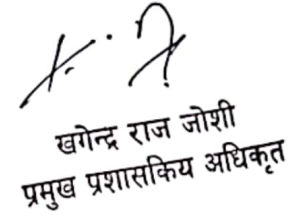 खगेन्द्र राज जोशी
प्रमुख प्रशासकिय अधिकृत